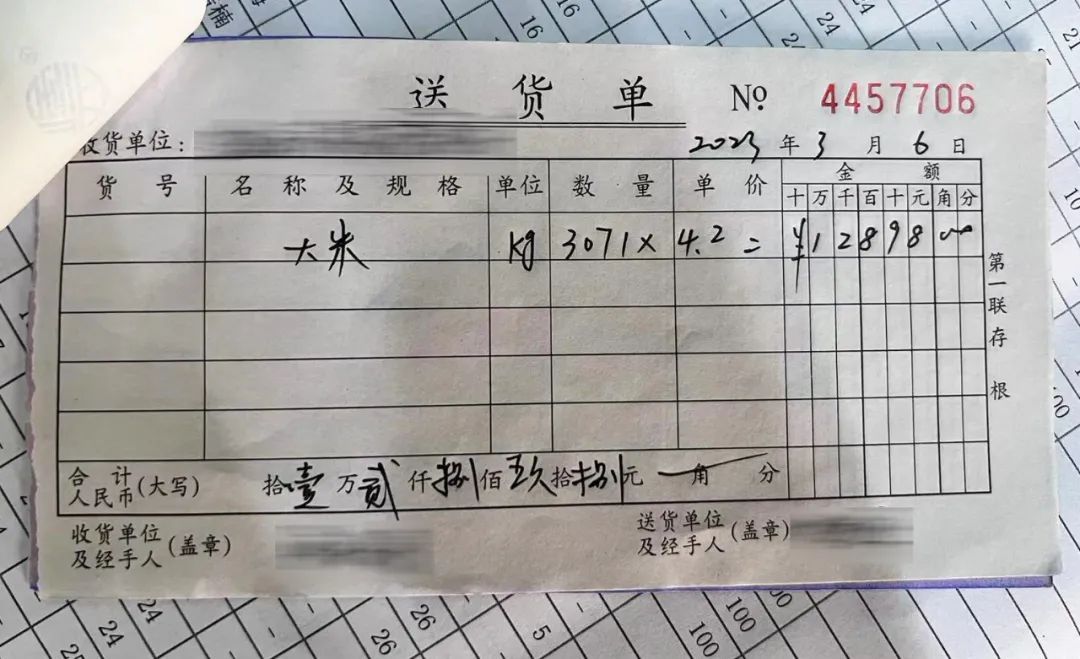 送 货 单 No 4457706
收货单位：
2023 年 3 月 6 日
货 号 名 称 及 规 格 单位 数 量 单 价 金 额
十 万 千 百 十 元 角 分
大米 kg 3071 × 4.2 = ¥12898
第一联存根
合 计
人民币(大写) 拾壹万贰仟捌佰玖拾捌元 角 分
收货单位
及经手人 (盖章)
送货单位
及经手人 (盖章)
楠
16
16
24
24
24
24
25
26
26
5
100
100
100
100